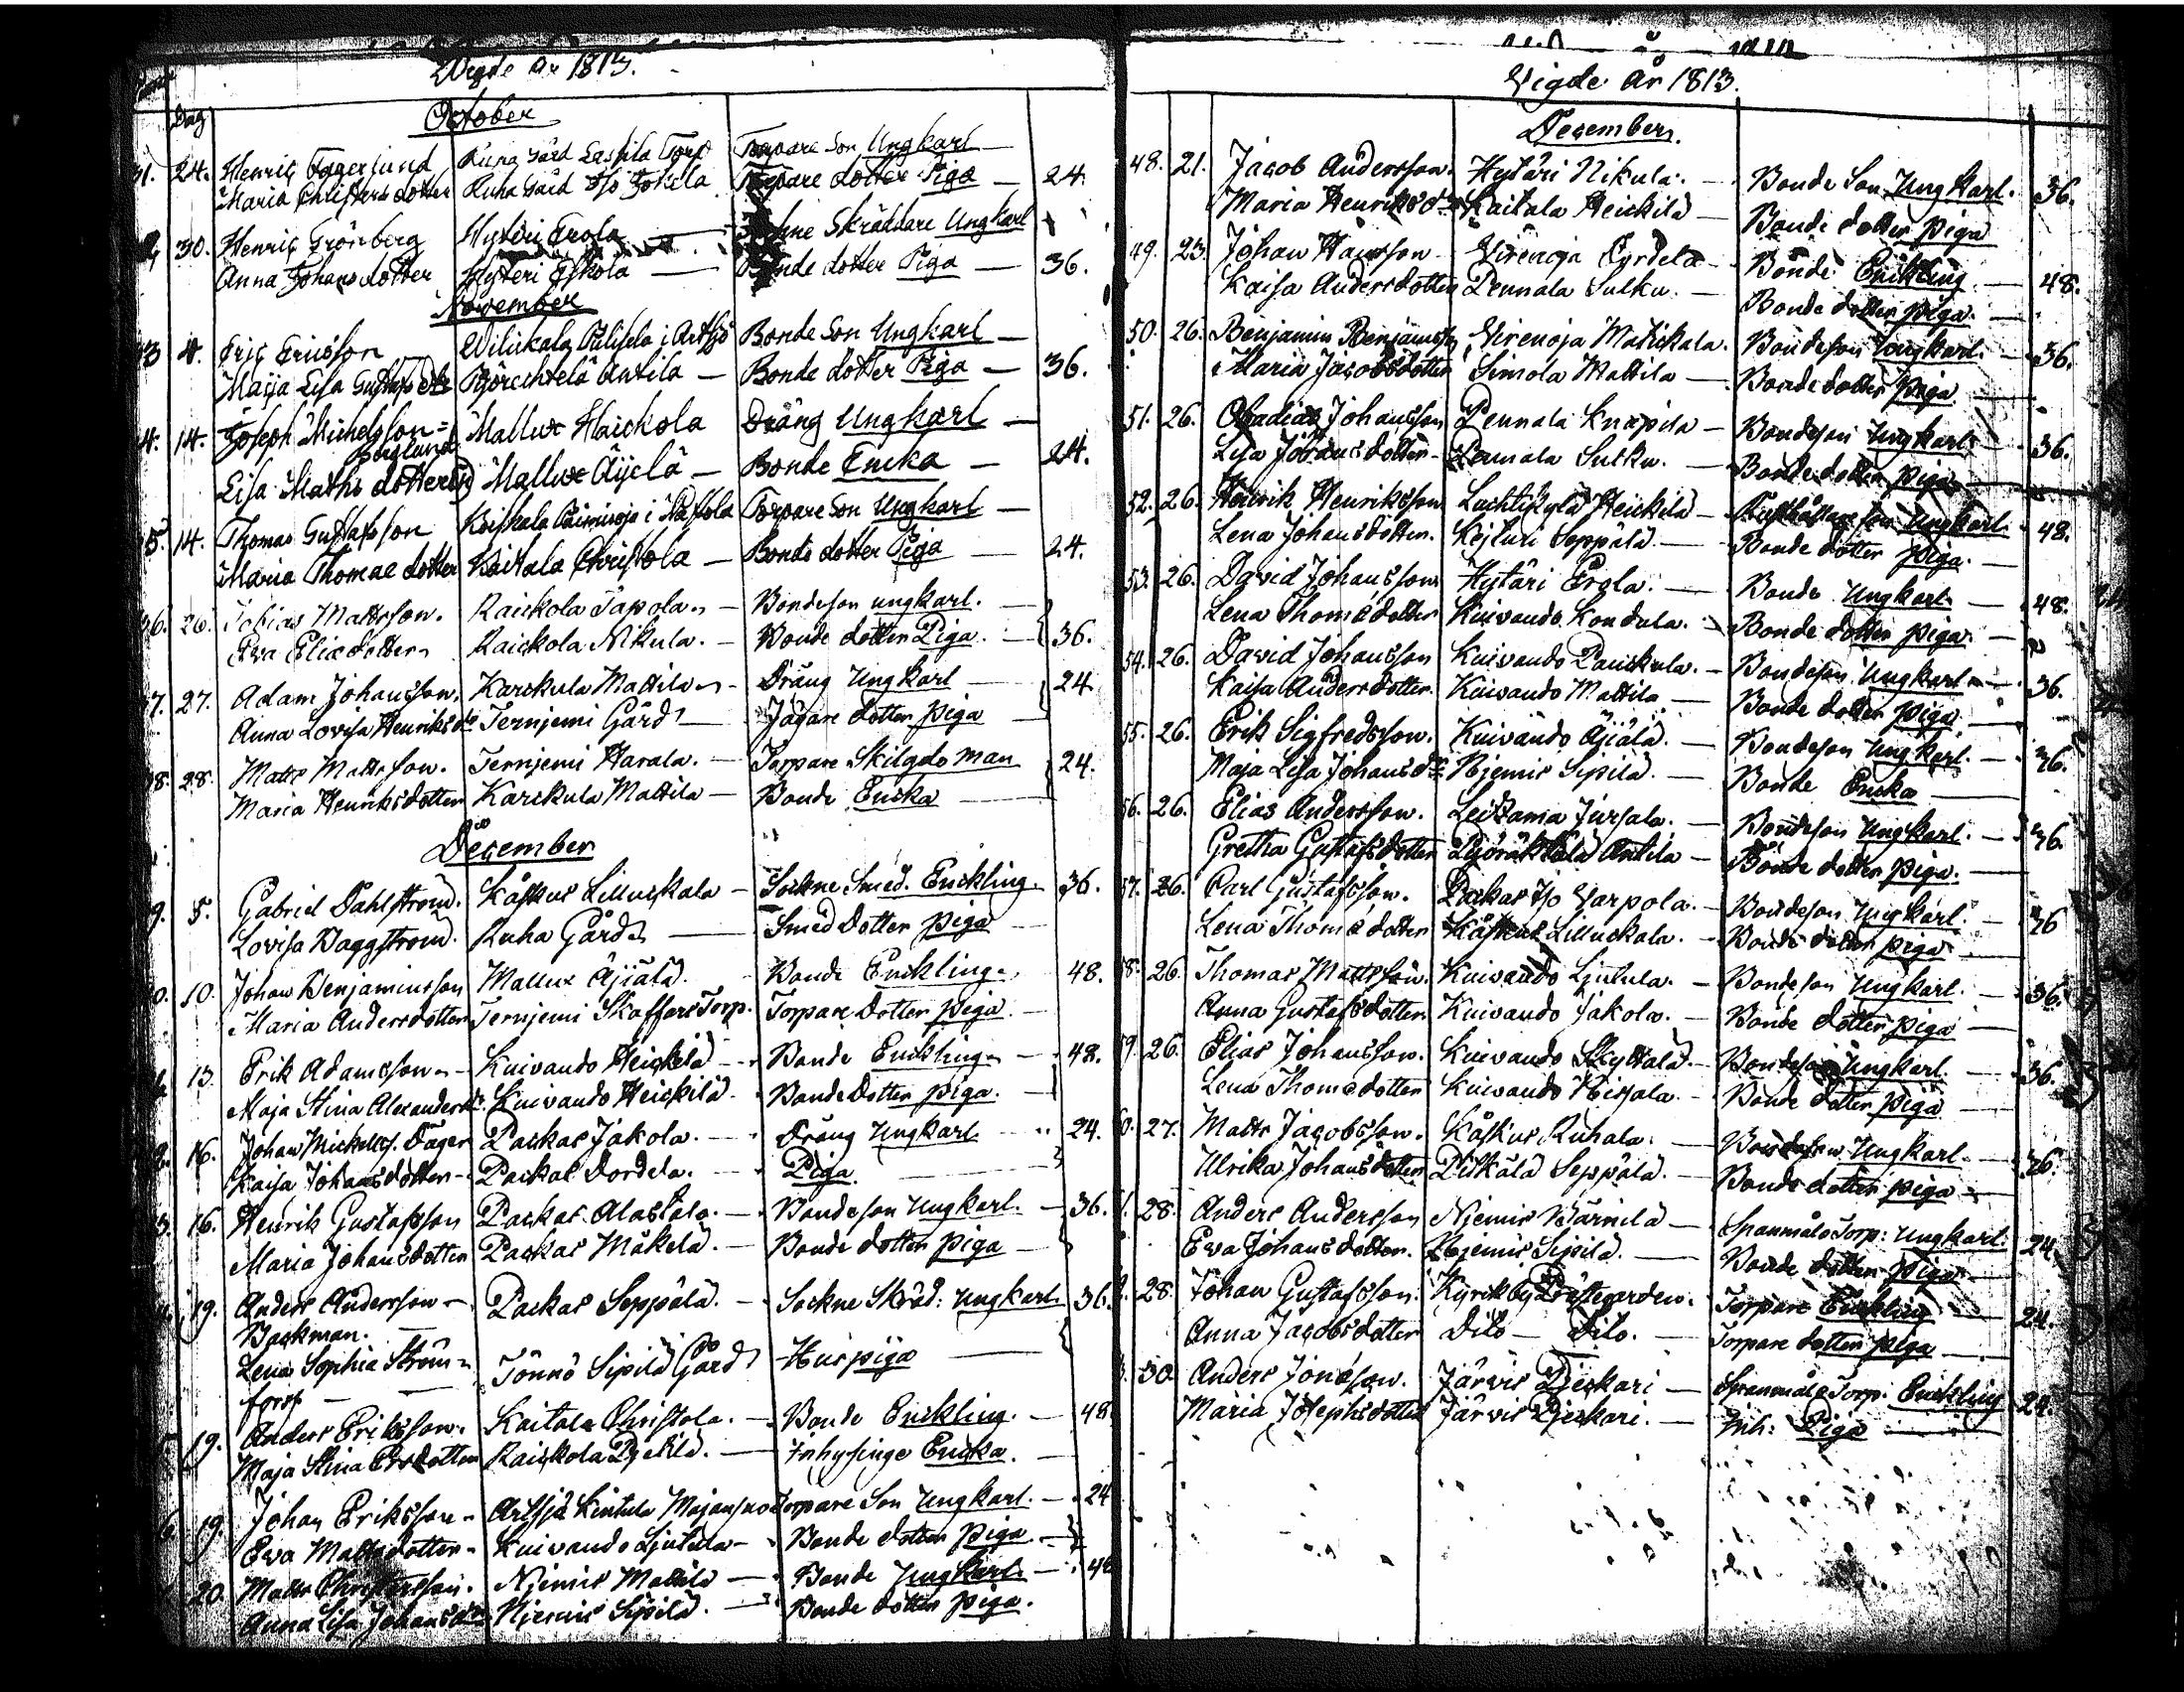 Wigde år 1813.
Dag
October
31. 24. Henric Fagerlund Ruha Gård Lassila Torp Torpare Son Ungkarl
Maria Christers dotter Ruha Gård Jokela Torpare dotter Piga 24.
30. Henric Grönberg Hyteri Erola Skräddare Ungkarl
Anna Johans dotter Hyteri Eskola Bonde dotter Piga 36.
November
4. Eric Ericsson Wilikala i Artsjö Bonde Son Ungkarl
Maija Lisa Gustafs dtr Antila Bonde dotter Piga 36.
14. Joseph Michelsson Mallux Haickola Dräng Ungkarl
Berglund
Lisa Mathsdotter Mallux Äijelä Bonde Encka 24.
14. Thomas Gustafsson i Nastola Torpare Son Ungkarl
Maria Thomae dotter Kaitala Christola Bonde dotter Piga 24.
36. 26. Tobias Mattsson. Raickola Tapola Bondeson ungkarl.
Eva Eliædotter Raickola Nikula. Bonde dotter Piga. 36.
37. 27. Adam Johansson. Karckula Mattila Dräng Ungkarl 24.
Anna Lovisa Henriksdr Ternjemi Gård Jägare dotter Piga
38. 28. Matts Mattsson. Ternjemi Harala. Torpare Skilgdo Man 24.
Maria Henriksdotter Karckula Mattila Bonde Encka
December
5. Gabriel Dahlström. Kåskus Lilluckala Sockne Smed. Enckling. 36.
Lovisa Haggström. Ruha Gård Smed Dotter piga
10. Johan Benjaminsson Mallux Äjiälä. Bonde Enckling. 48.
Maria Andersdotter Ternjemi Skaffars Torp. Torpare Dotter piga
13. Erik Adamsson Kuivando Heickilä Bonde Enckling 48.
Maja Stina Alexandersdr Kuivando Heickilä. Bonde Dotter piga.
16. Johan Mickelss. Fager Packas Jakola. Dräng Ungkarl 24.
Kaisa Johansdotter Packas Dordela. Piga
16. Henrik Gustafsson Packas Alastalo. Bondeson Ungkarl. 36.
Maria Johansdotter Packas Mäkelä. Bonde dotter piga
19. Anders Andersson Packas Seppälä. Sockne Skräd: Ungkarl 36.
Backman.
Lena Sophia Ström- Tönnö Sipilä Gård Huspiga
fors
19. Anders Eriksson. Kaitala Christola. Bonde Enckling. 48
Maja Stina Ersdotter Raickola Pjetilä. Inhysinge Encka.
19. Johan Eriksson Artsjö Kintula Torpare Son Ungkarl. 24
Eva Mattsdotter Kuivando Ljutula Bonde dotter piga
20. Matts Christersson. Njemis Mattila Bonde Ungkarl 48
Anna Lisa Johansdr Njemis Sipilä. Bonde dotter piga.
Vigde År 1813.
December.
48. 21. Jacob Andersson. Hytäri Nikula. Bonde Son Ungkarl. 36.
Maria Henriksdr Kaitala Heickilä Bonde dotter piga
49. 23. Johan Hansson Virenoja Cyrdelä Bonde Enckling 48.
Kaisa Andersdotter Pennala Sulku. Bonde dotter piga.
50. 26. Benjamin Benjamsson Virenoja Matickala. Bondeson Ungkarl. 36.
Maria Jacobsdotter Simola Mattila Bonde dotter piga
51. 26. Obadias Johansson Pennala Knapila Bondeson Ungkarl 36.
Lisa Johansdotter Pennala Sulku. Bonde dotter piga
52. 26. Henrik Henriksson Lachtikylä Heickilä Rusthållare son Ungkarl. 48.
Lena Johansdotter. Kejturi Seppälä Bonde dotter piga.
53. 26. David Johansson Hytäri Erola. Bonde Ungkarl 48.
Lena Thomædotter Kuivando Kondula. Bonde dotter piga
54. 26. David Johansson Kuivando Pauckula. Bondeson Ungkarl 36.
Kaisa Andersdotter. Kuivando Mattila Bonde dotter piga
55. 26. Erik Sigfredsson. Kuivando Äjiälä. Bondeson Ungkarl. 36.
Maja Lisa Johansdr Njemis Sipilä. Bonde Encka
56. 26. Elias Andersson. Leitzama Jursala. Bondeson Ungkarl. 36.
Gretha Gustafsdotter Antila Bonde dotter piga.
57. 26. Carl Gustafsson. Packas Varpola. Bondeson Ungkarl. 36
Lena Thomædotter Kåskus Lilluckala. Bonde dotter piga
58. 26. Thomas Mattsson. Kuivando Ljutula. Bondeson Ungkarl. 36.
Anna Gustafsdotter Kuivando Jakola. Bonde dotter piga
59. 26. Elias Johansson. Kuivando Skyttälä. Bondeson Ungkarl. 36.
Lena Thomædotter Kuivando Bonde dotter piga
27. Matts Jacobsson. Kåskus Ruhala. Bondeson Ungkarl 36.
Ulrika Johansdotter Piskälä Seppälä. Bonde dotter piga
28. Anders Andersson Njemis Bärnilä Spanmåls Torp: Ungkarl. 24
Eva Johansdotter. Njemis Sipilä. Bonde dotter piga
28. Johan Gustafsson. Kyrikby Prästegården. Torpare Enckling 24.
Anna Jacobsdotter Dito Dito. Torpare dotter piga
30. Anders Jonasson. Järvis Pjeskari Spanmåls Torp. Enckling 24.
Maria Josephsdotter Järvis Pjeskari. Inh: Piga